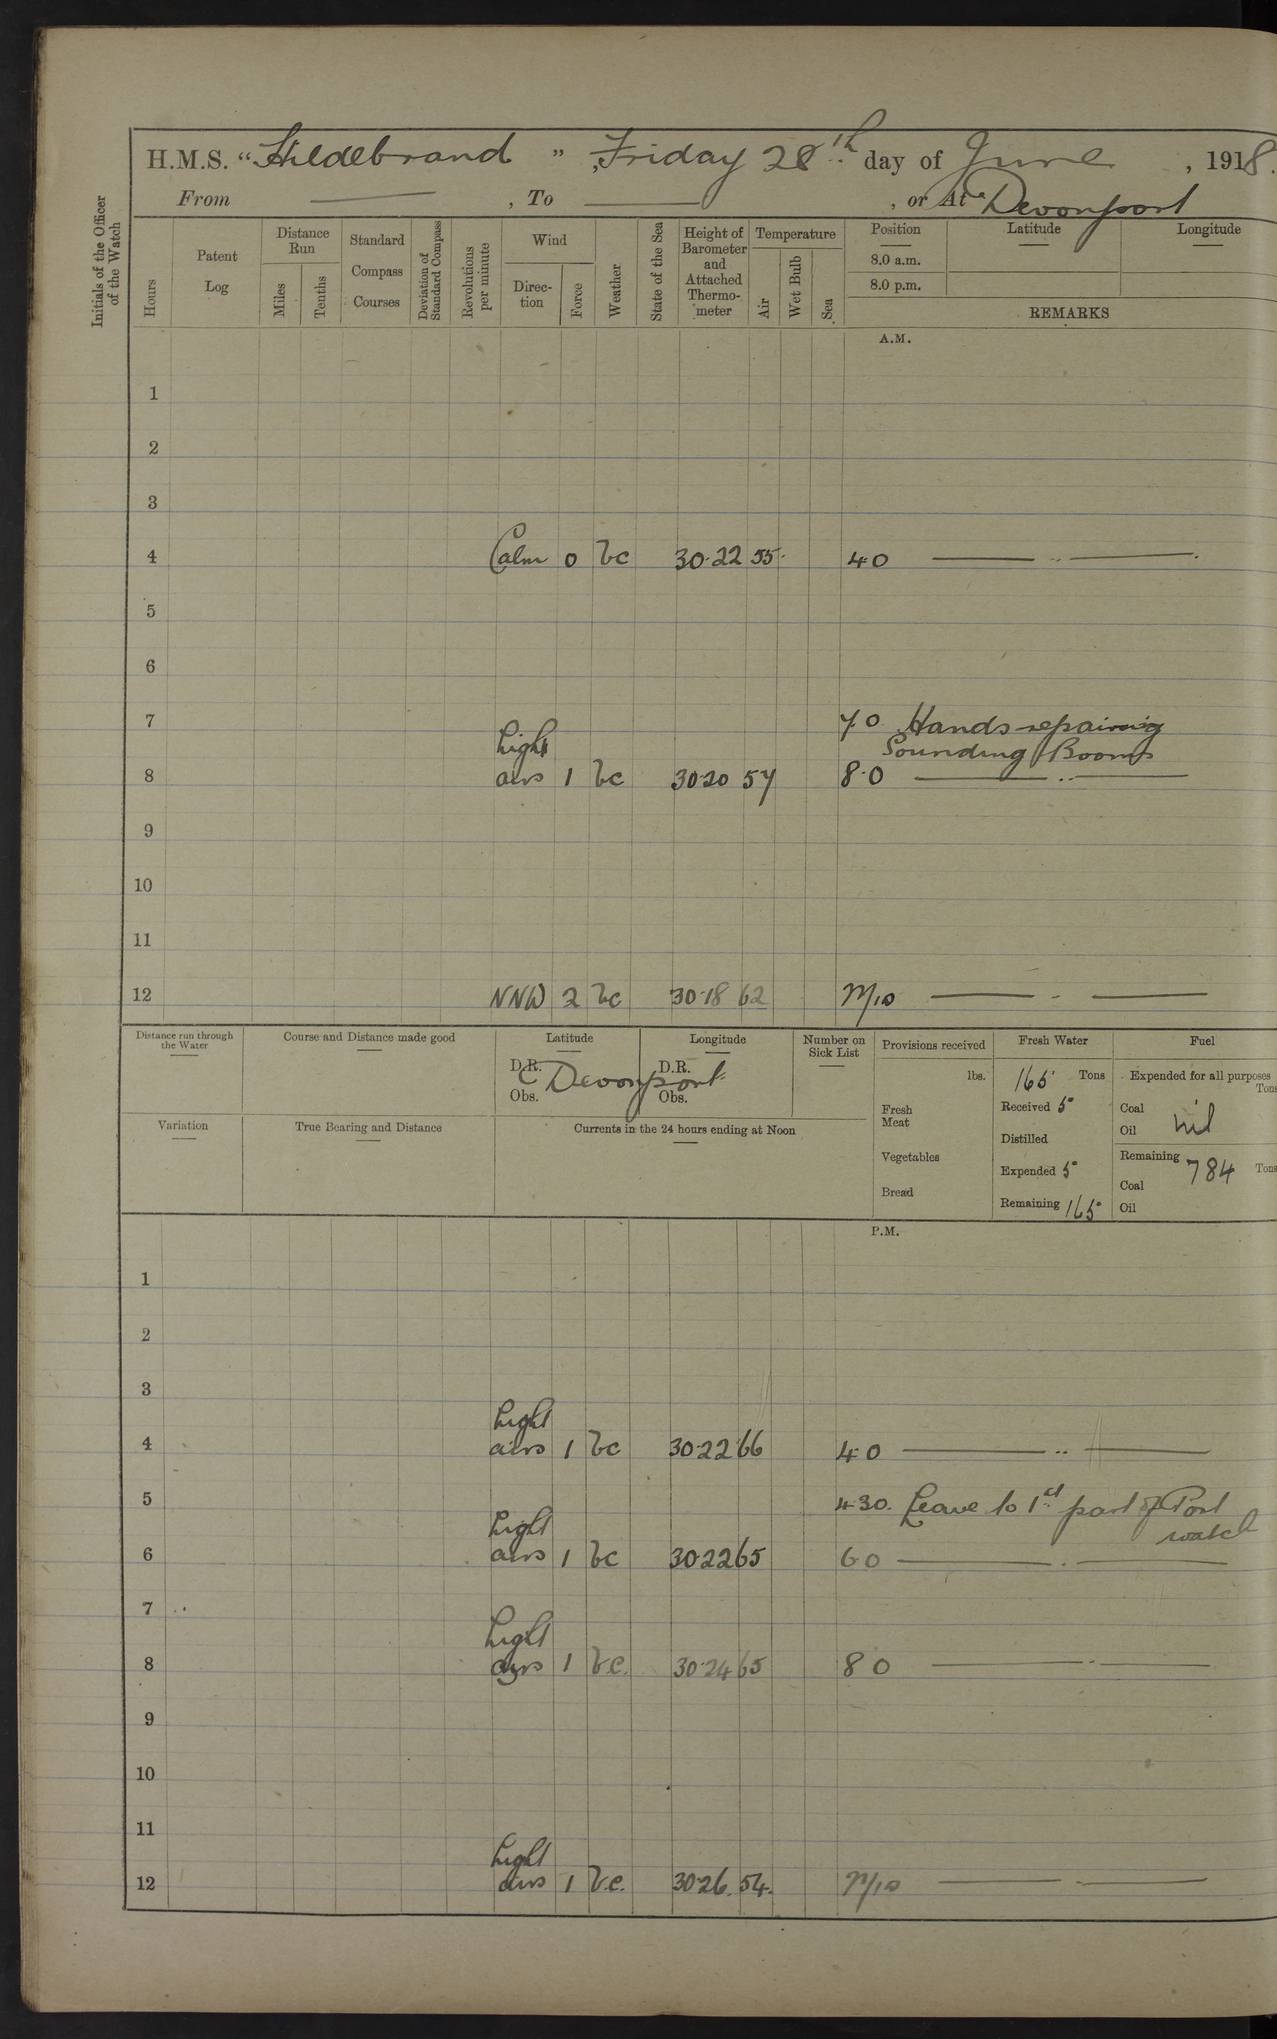 H.M.S. "Hildebrand", Friday 28th day of June, 1918.
From ——— , To ——— , or At Devonport
Initials of the Officer of the Watch
Hours
Patent Log
Distance Run
Miles
Tenths
Standard Compass Courses
Deviation of Standard Compass
Revolutions per minute
Wind
Direction
Force
Weather
State of the Sea
Height of Barometer and Attached Thermometer
Temperature
Air
Wet Bulb
Sea
Position
Latitude
Longitude
8.0 a.m.
8.0 p.m.
REMARKS
A.M.
1
2
3
4 Calm 0 bc 30.22 55. 4.0 ——— .. ———
5
6
7 7.0 Hands repairing
Sounding Booms
Light
8 airs 1 bc 30.20 57 8.0 ——— .. ———
9
10
11
12 NNW 2 bc 30.18 62 ——— . ———
Distance run through the Water
Course and Distance made good
Latitude
D.R.
Obs.
Longitude
D.R.
Obs.
Devonport
Number on Sick List
Provisions received
lbs.
Fresh Meat
Vegetables
Bread
Fresh Water
165 Tons
Received 5
Distilled
Expended 5
Remaining 165
Fuel
Expended for all purposes
Tons
Coal
Oil nil
Remaining 784 Tons
Coal
Oil
Variation
True Bearing and Distance
Currents in the 24 hours ending at Noon
P.M.
1
2
3
Light
4 airs 1 bc 30.22 66 4.0 ——— .. ———
5 4.30. Leave to 1st part of Port
watch
Light
6 airs 1 bc 30.22 65 6.0 ——— . ———
7
Light
8 airs 1 b.c. 30.24 65 8.0 ——— .. ———
9
10
11
Light
12 airs 1 b.c. 30.26. 54. ——— . ———